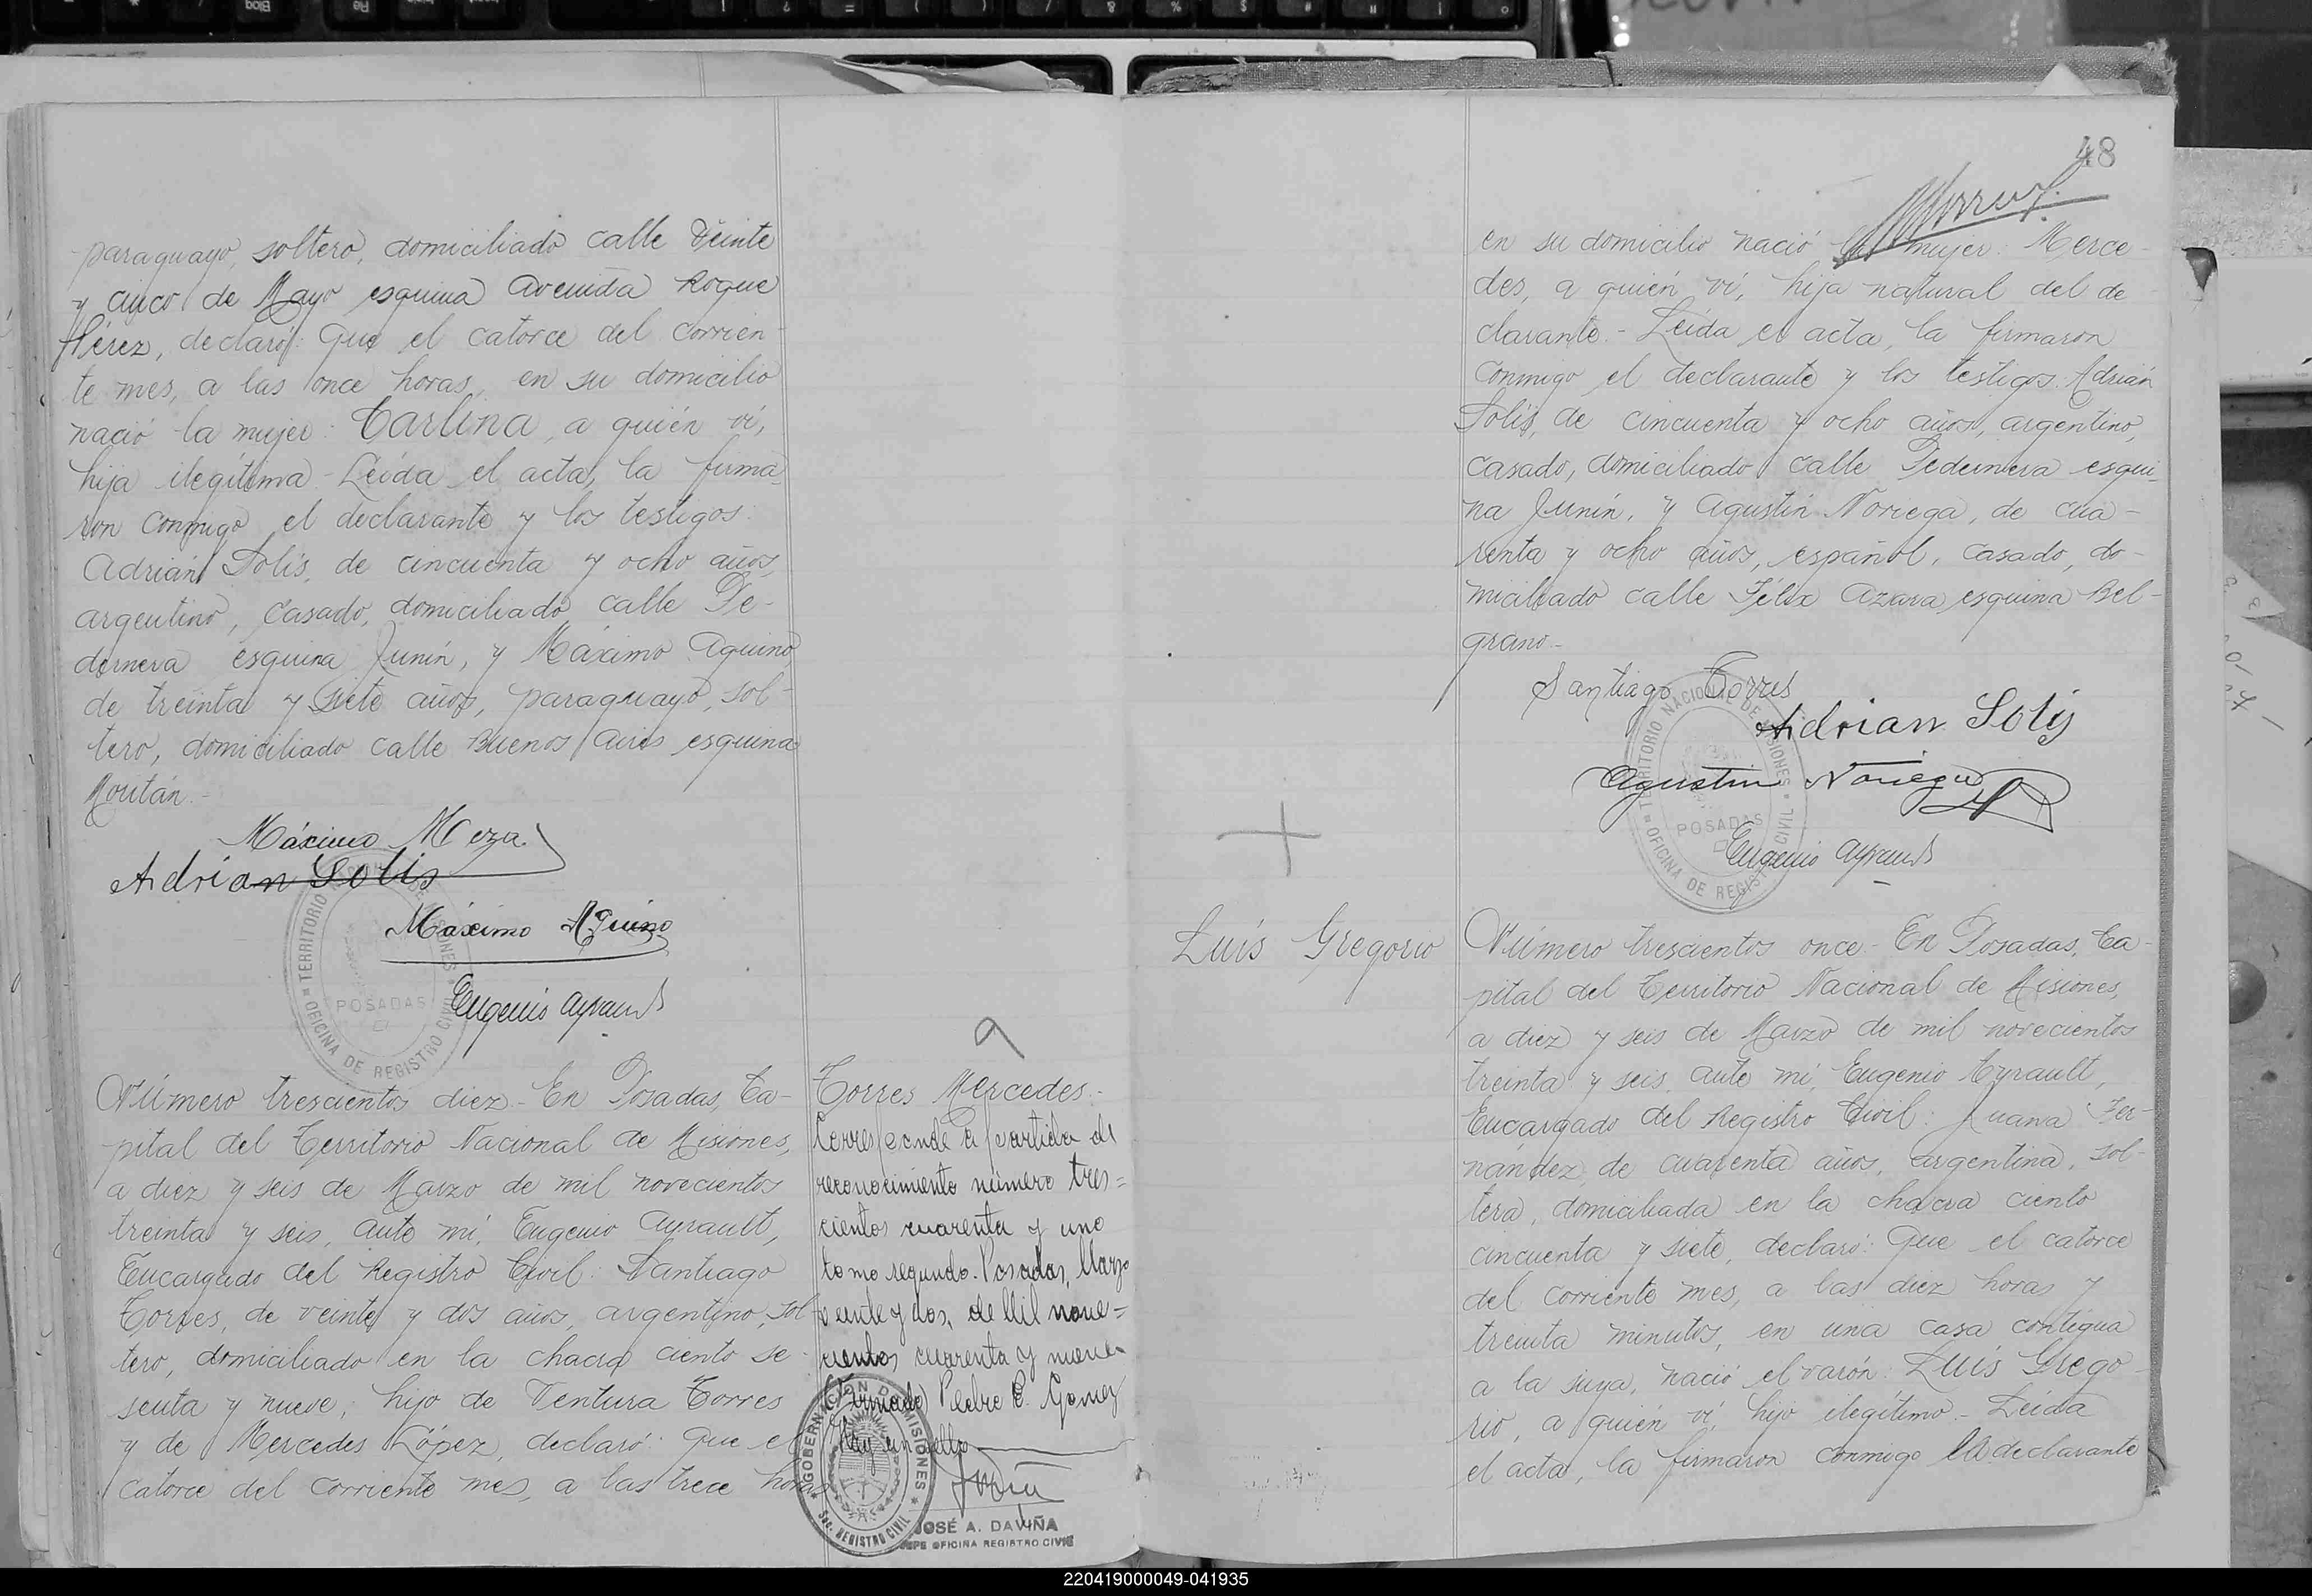 paraguayo, soltero, domiciliado calle Veinte
y cinco de Mayo esquina Avenida Roque
Pérez, declaró: Que el catorce del corrien-
te mes, a las once horas, en su domicilio
nació la mujer: Carlina, a quién ví,
hija ilegítima.- Leída el acta, la firma-
ron conmigo el declarante y los testigos:
Adrián Solís, de cincuenta y ocho años,
argentino, casado, domiciliado calle Pe-
dernera esquina Junín, y Máximo Aquino
de treinta y siete años, paraguayo, sol-
tero, domiciliado calle Buenos Aires esquina
Máximo Meza
Adrian Solis
Máximo Aquino
Eugenio Ayrault
TERRITORIO NACIONAL DE MISIONES
POSADAS
OFICINA DE REGISTRO CIVIL
Número trescientos diez.- En Posadas, Ca-
pital del Territorio Nacional de Misiones,
a diez y seis de Marzo de mil novecientos
treinta y seis, ante mí, Eugenio Ayrault,
Encargado del Registro Civil: Santiago
Torres, de veinte y dos años, argentino, sol-
tero, domiciliado en la chacra ciento se-
senta y nueve, hijo de Ventura Torres
y de Mercedes López, declaró: Que el
catorce del corriente mes, a las trece horas
Torres Mercedes.-
Corresponde a partida de
reconocimiento número tres=
cientos cuarenta y uno
tomo segundo. Posadas, Marzo
veinte y dos, de Mil nove=
cientos cuarenta y nueve
(Firmado) Pedro E. Gomez
Hay un sello
GOBERNACION DE MISIONES
Sec. REGISTRO CIVIL
JOSÉ A. DAVIÑA
JEFE OFICINA REGISTRO CIVIL
48
en su domicilio nació la mujer: Merce-
des, a quién ví, hija natural del de
clarante.- Leída el acta, la firmaron
conmigo el declarante y los testigos: Adrián
Solís, de cincuenta y ocho años, argentino,
casado, domiciliado calle Pedernera esqui-
na Junín, y Agustín Noriega, de cua-
renta y ocho años, español, casado, do-
miciliado calle Félix Azara esquina Bel-
grano.-
Santiago Torres
Adrian Solis
Agustin Noriega
Eugenio Ayrault
TERRITORIO NACIONAL DE MISIONES
POSADAS
OFICINA DE REGISTRO CIVIL
Luis Gregorio
Número trescientos once.- En Posadas, Ca-
pital del Territorio Nacional de Misiones,
a diez y seis de Marzo de mil novecientos
treinta y seis, ante mí, Eugenio Ayrault,
Encargado del Registro Civil: Juana Fer-
nández, de cuarenta años, argentina, sol-
tera, domiciliada en la chacra ciento
cincuenta y siete, declaró: Que el catorce
del corriente mes, a las diez horas y
treinta minutos, en una casa contigua
a la suya, nació el varón: Luis Grego-
rio, a quién ví, hijo ilegítimo.- Leída
el acta, la firmaron conmigo la declarante
220419000049-041935